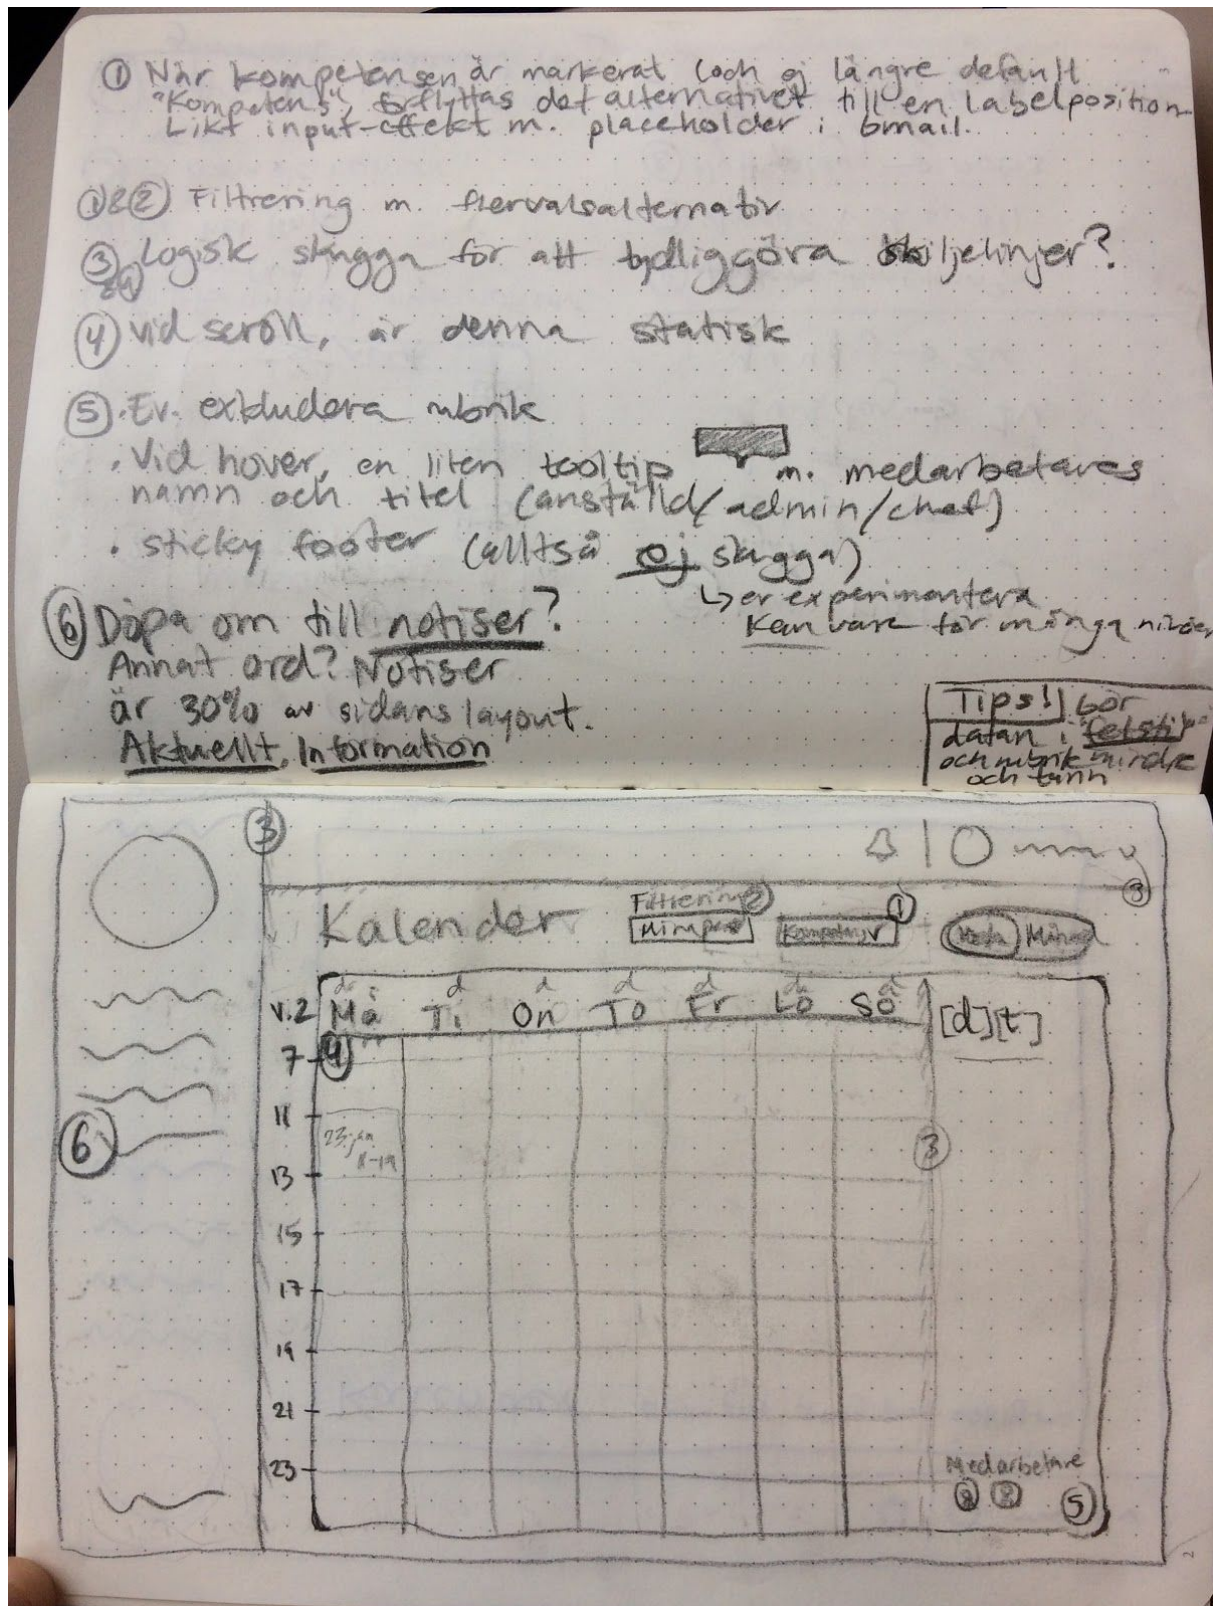 ① När kompetensen är markerat (och ej längre default
"Kompetens", förflyttas det alternativet till en labelposition
Likt input-effekt m. placeholder i Gmail.
①&② Filtrering m. flervalsalternativ
③ Logisk skugga för att tydliggöra skiljelinjer?
&④
④ vid scroll, är denna statisk
⑤ . Ev. exkludera rubrik
. Vid hover, en liten tooltip m. medarbetares
namn och titel (anställd/admin/chef)
. sticky footer (alltså ej skugga)
↳ ev experimentera
Kan vara för många nivåer
⑥ Döpa om till notiser?
Annat ord? Notiser
är 30% av sidans layout.
Aktuellt, Information
Tips! Gör
datan i "fetstil"
och rubrik mindre
och tunn
③
③
Kalender
Filtrering ②
Kompetens ①
Månad
d d d d d d
v.2 Må Ti On To Fr Lö Sö [d][t]
7 ④
11
23. jan
11-19
③
13
⑥
15
17
19
21
23
Medarbetare
⑤
2